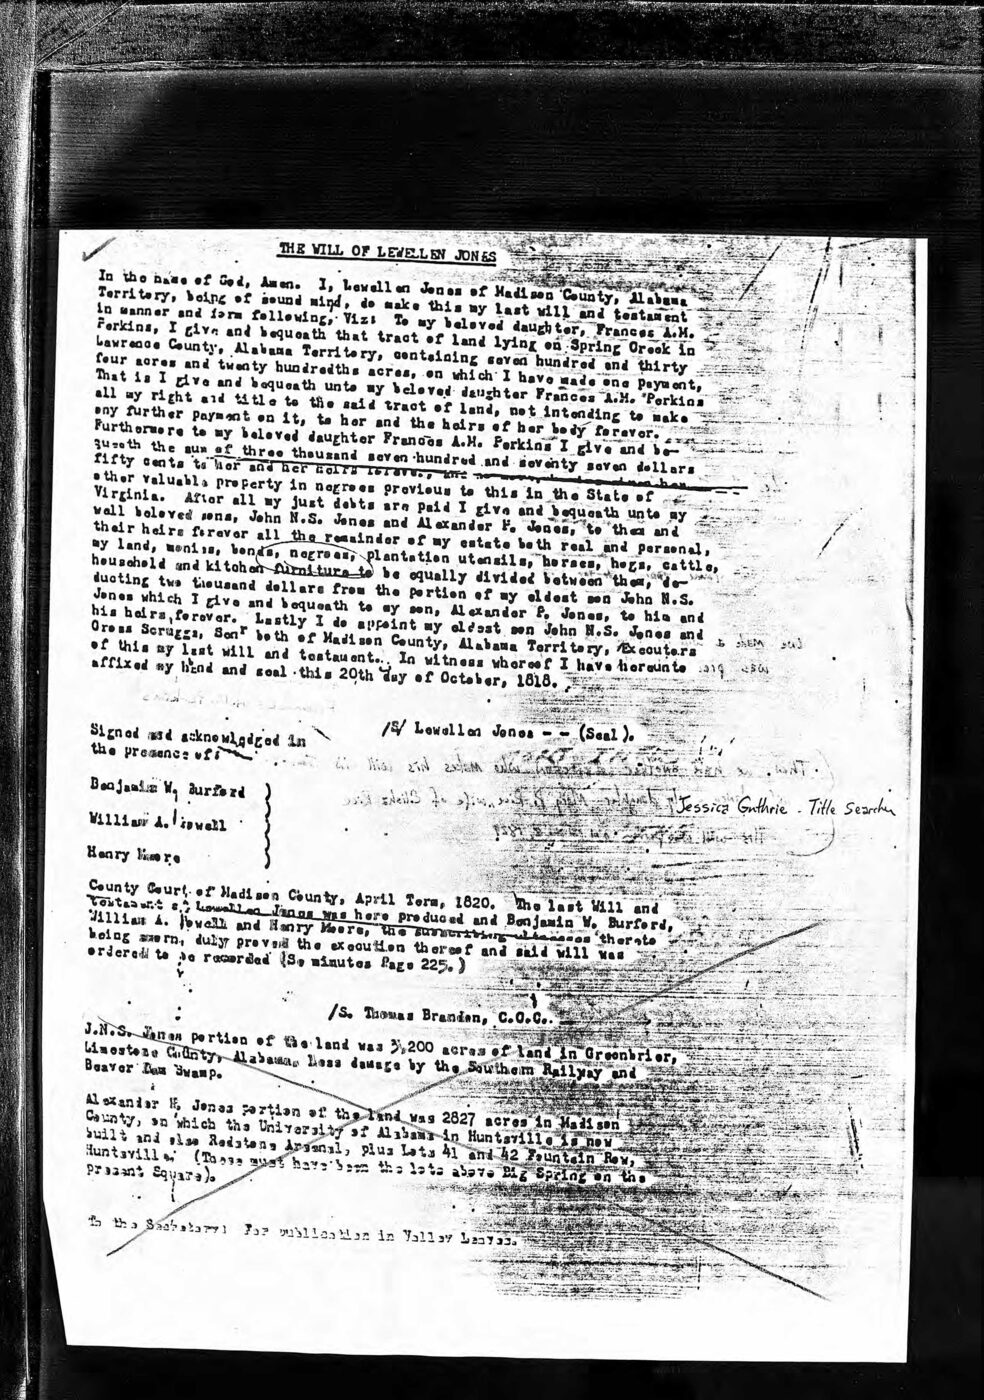 THE WILL OF LEWELLEN JONES
In the name of God, Amen. I, Lewellen Jones of Madison County, Alabama
Territory, being of sound mind, do make this my last will and testament
in manner and form following, Viz: To my beloved daughter, Frances A.M.
Perkins, I give and bequeath that tract of land lying on Spring Creek in
Lawrence County, Alabama Territory, containing seven hundred and thirty
four acres and twenty hundredths acres, on which I have made one payment,
That is I give and bequeath unto my beloved daughter Frances A.M. Perkins
all my right and title to the said tract of land, not intending to make
any further payment on it, to her and the heirs of her body forever.
Furthermore to my beloved daughter Frances A.M. Perkins I give and be-
queath the sum of three thousand seven hundred and seventy seven dollars
fifty cents to her and her heirs forever,
other valuable property in negroes previous to this in the State of
Virginia. After all my just debts are paid I give and bequeath unto my
well beloved sons, John N.S. Jones and Alexander P. Jones, to them and
their heirs forever all the remainder of my estate both real and personal,
my land, monies, bonds, negroes, plantation utensils, horses, hogs, cattle,
household and kitchen furniture to be equally divided between them, de-
ducting two thousand dollars from the portion of my eldest son John N.S.
Jones which I give and bequeath to my son, Alexander P. Jones, to him and
his heirs forever. Lastly I do appoint my eldest son John N.S. Jones and
Gross Scruggs, Senr both of Madison County, Alabama Territory, Executors
of this my last will and testament. In witness whereof I have hereunto
affixed my hand and seal this 20th day of October, 1818.
/S/ Lewellen Jones - - (Seal).
Signed and acknowledged in
the presence of:
Benjamin W. Burford
William A. Jewell
Henry Moore
Jessica Guthrie - Title Searcher
County Court of Madison County, April Term, 1820. The last Will and
testament of Lewellen Jones was here produced and Benjamin W. Burford,
William A. Jewell and Henry Moore, the subscribing witnesses thereto
being sworn, duly proved the execution thereof and said will was
ordered to be recorded (Se minutes Page 225.)
/S. Thomas Brandon, C.C.C.
J.N.S. Jones portion of the land was 3,200 acres of land in Greenbrier,
Limestone County, Alabama, Less damage by the Southern Railway and
Beaver Dam Swamp.
Alexander H. Jones portion of the land was 2827 acres in Madison
County, on which the University of Alabama in Huntsville is now
built and also Redstone Arsenal, plus Lots 41 and 42 Fountain Row,
Huntsville. (These must have been the lots above Big Spring on the
present Square).
To the Secretary: For publication in Valley Leaves.